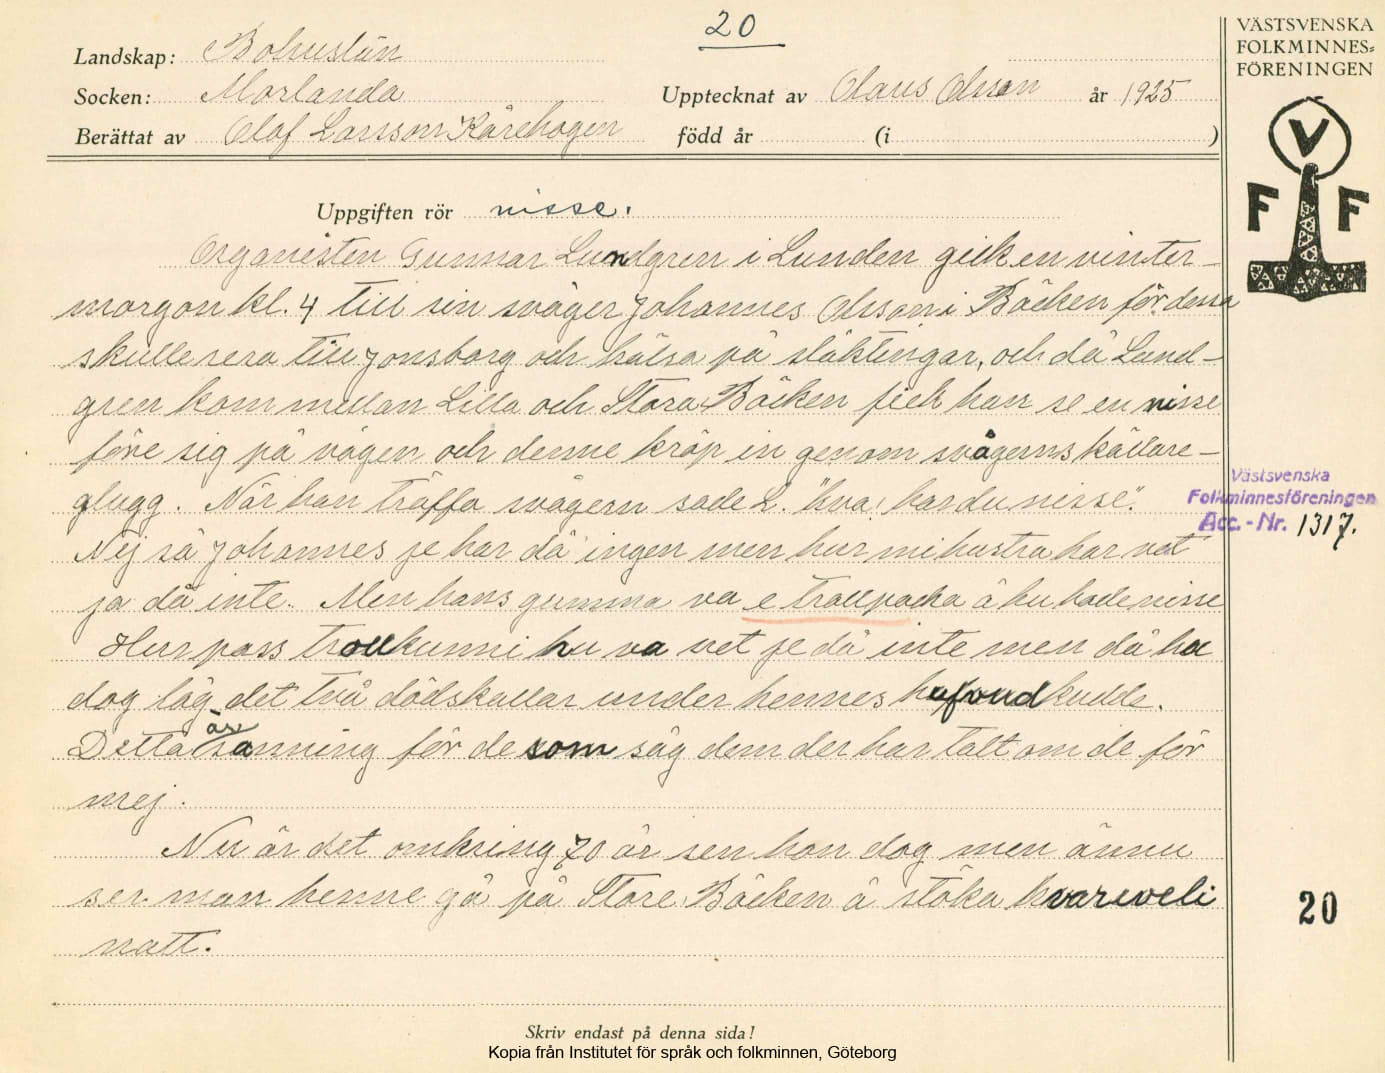 20
Landskap: Bohuslän
Socken: Morlanda
Upptecknat av Olaus Olsson år 1925
Berättat av Olof Larsson Kårehogen född år (i )
VÄSTSVENSKA
FOLKMINNES=
FÖRENINGEN
V
F F
Uppgiften rör nisse.
Organisten Gunnar Lundgren i Lunden gick en vinter-
morgon kl. 4 till sin svåger Johannes Olsson i Bäcken för dessa
skulle resa till Jonsborg och hälsa på släktingar, och då Lund-
gren kom mellan Lilla och Stora Bäcken fick han se en nisse
före sig på vägen och denne kröp in genom svågerns källare-
glugg. När han träffa svågern sade L. "hva! har du nisse".
Nej sa Johannes je har då ingen men hur mi hustra har vet
ja då inte. Men hans gumma va e trollpacka å hu hade nisse
Hur pass trollkunni hu va vet je då inte men då hu
dog låg det två dödskallar under hennes hufvudkudde.
Detta är sanning för de som såg dem der har talt om de för
mej.
Nu är det omkring 70 år sen hon dog men ännu
ser man henne gå på Store Bäcken å stöka kvar eveli
natt.
Västsvenska
Folkminnesföreningen
Acc.-Nr. 1317.
20
Skriv endast på denna sida!
Kopia från Institutet för språk och folkminnen, Göteborg